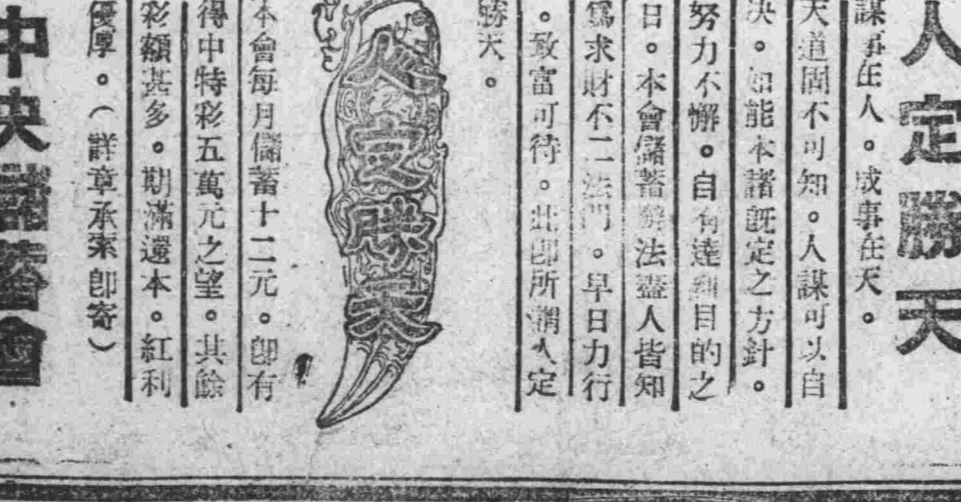 人定勝天
謀事在人。成事在天。
天道固不可知。人謀可以自
决。如能本諸既定之方針。
努力不懈。自有達到目的之
日。本會儲蓄辦法盡人皆知
爲求財不二法門。早日力行
。致富可待。此卽所謂人定
勝天。
人定勝天
本會每月儲蓄十二元。卽有
得中特彩五萬元之望。其餘
彩額甚多。期滿還本。紅利
優厚。(詳章承索卽寄)
中央儲蓄會